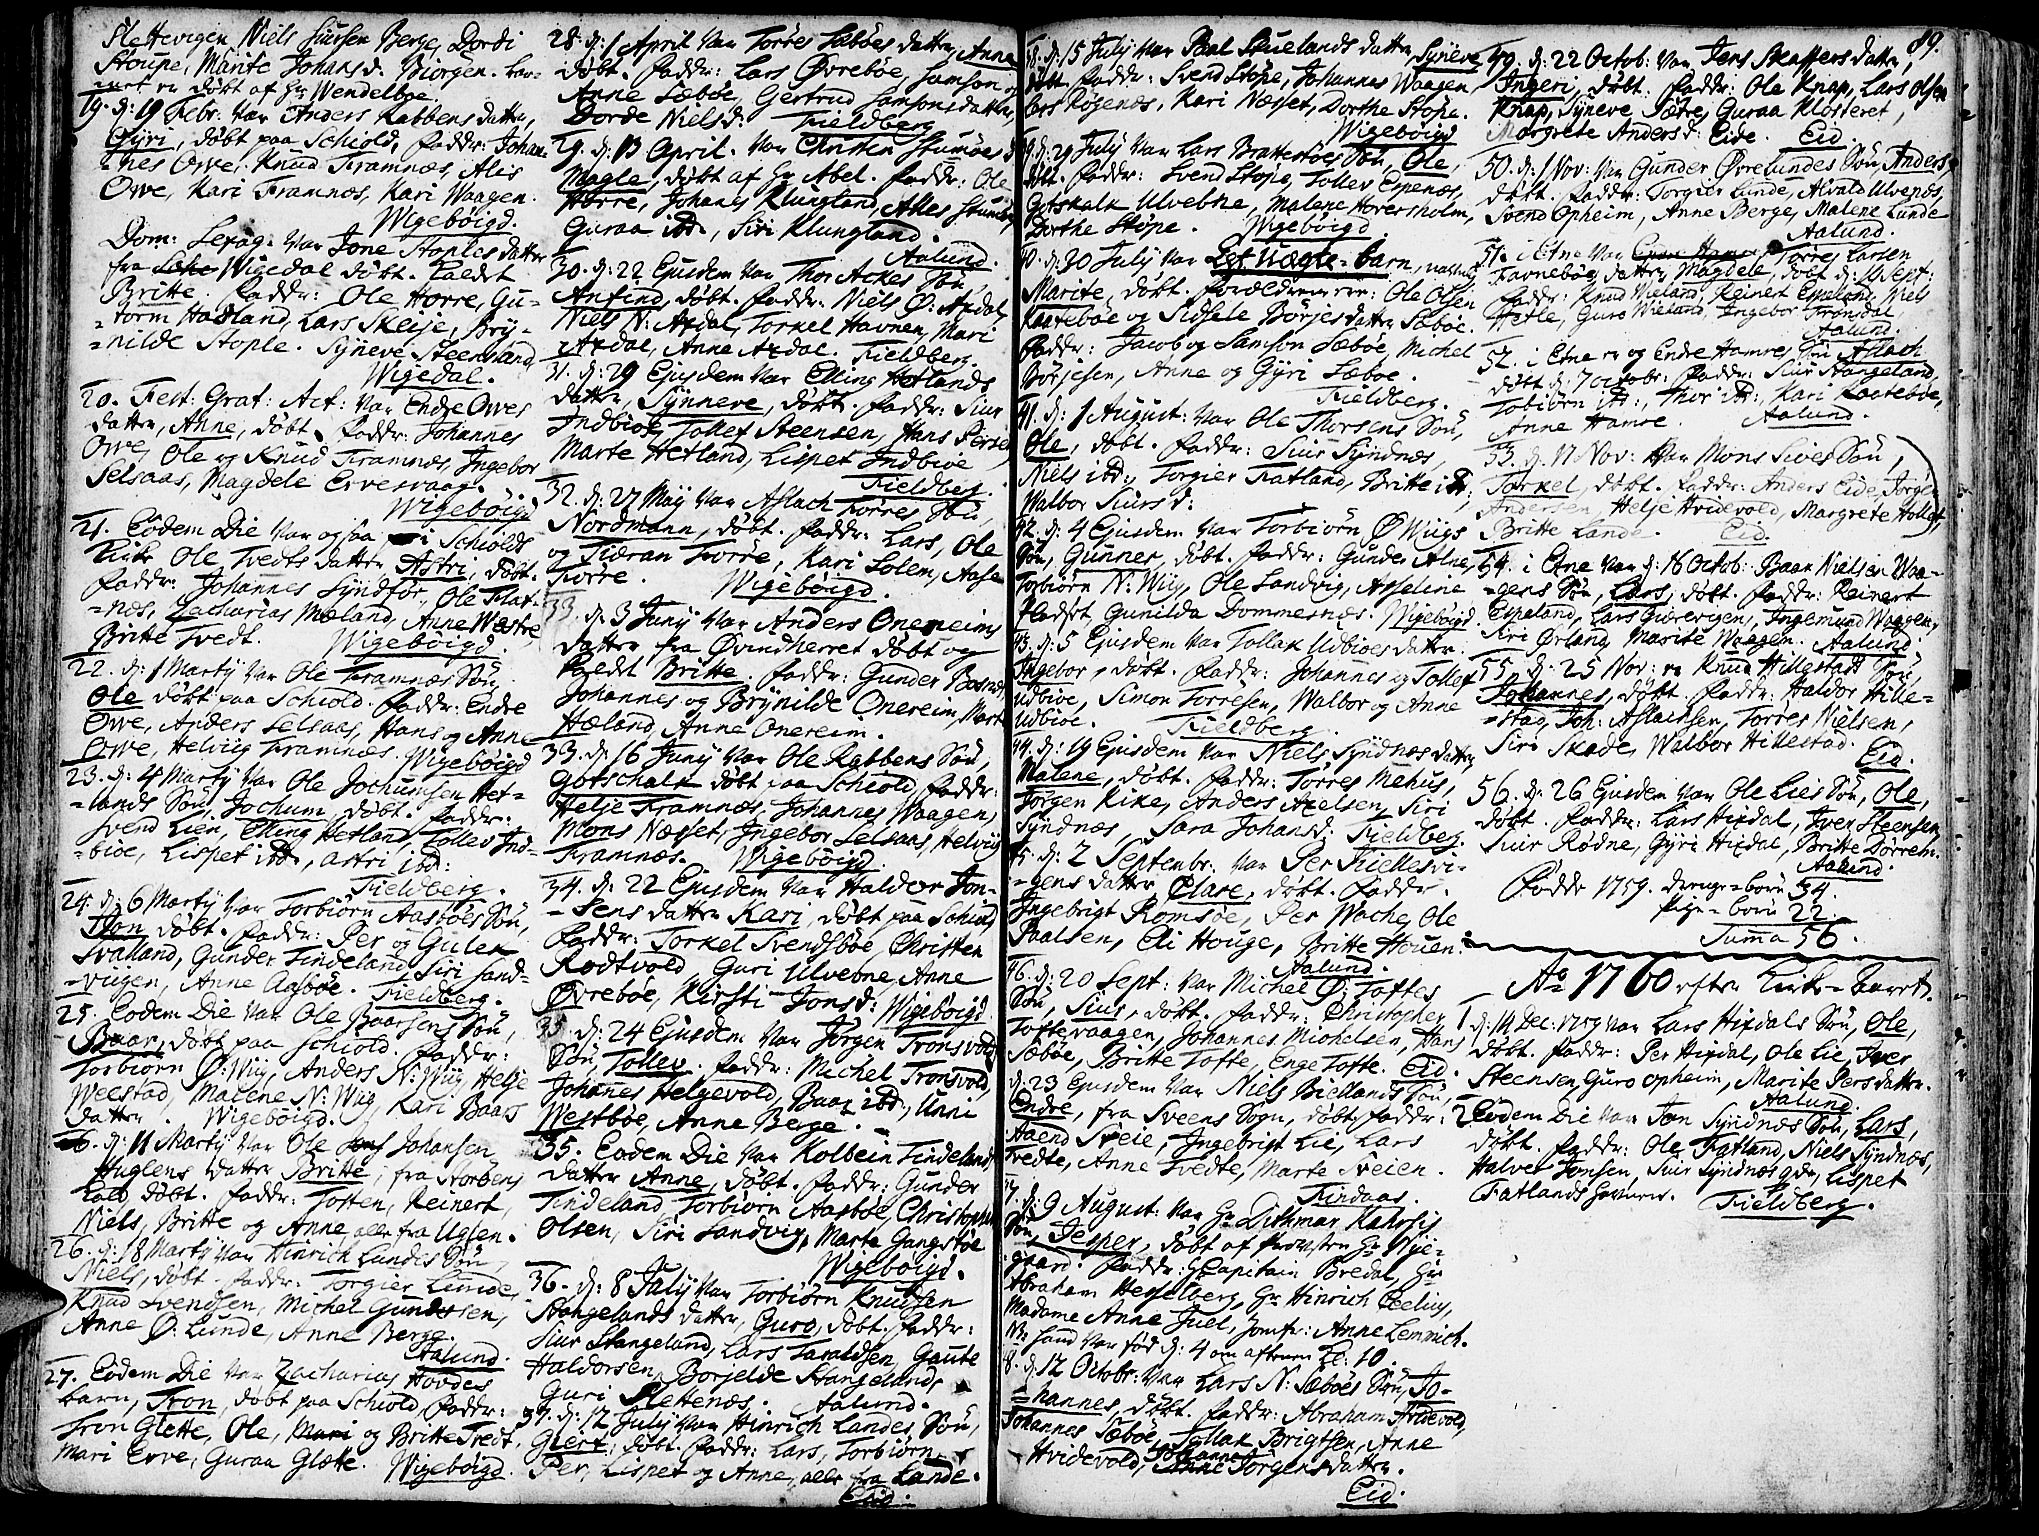 Slettevigen Niels Siursen Berge, Dordi
Stoupe, Marite Johansd: Biorgen. bar-
net er døbt af Hr Wendelboe.
19. d: 19 Febr: var Anders Rabbens datter,
Gyri, døbt paa Schiold, Faddr: Johan-
nes Owe, Knud Framnæs, Alis
Owe, Kari Framnæs, Kari Waagen.
Wigebøigd.
Dom: Sexag: var Jone Stoples datter
fra Wigedal døbt. kaldt
Britte. Faddr: Ole Horre, Gu-
torm Hadland, Lars Skeije, Bry-
nilde Stople. Syneve Steensland
Wigedal.
20. Fest: Grat: Act: var Endre Owes
datter, Anne, døbt. Faddr: Johannes
Owe, Ole og Knud Framnæs, Ingebor
Selsaas, Magdele Ervesvaag.
Wigebøigd
21. Eodem Die var ogsaa i Schiolds
Kirke Ole Tvedts datter Astri, døbt.
Faddr: Johannes Syndfør, Ole Flat-
næs, Zacharias Mæland, Anne Westre,
Britte Tvedt. Wigebøigd.
22. d: 1 Marty var Ole Framnæs Søn,
Ole døbt paa Schiold. Faddr: Endre
Owe, Anders Selsaas, Hans og Anne
Owe, Helvig Framnæs. Wigebøigd
23. d: 4 Marty var Ole Jochumsen Het-
lands Søn, Jochum, døbt. Faddr:
Svend Lien, Elling Hetland, Tollev Ind-
bioe, Lispet ibd:, Astri ibd:
Fieldberg.
24. d: 6 Marty var Torbiørn Aasbøes Søn,
Jon døbt. Faddr: Per og Gulek
Svalland, Gunder Tindeland, Siri Sand-
viigen, Anne Aasbøe. Fieldberg.
25. Eodem Die var Ole Baarsens Søn,
Baar, døbt paa Schiold. Faddr:
Torbiørn Ø: Wiig, Anders N: Wiig, Helje
Weestad, Malene N: Wiig, Kari Baars
datter. Wigebøigd.
d: 11 Marty var Ole Johansen
Huglens datter Britte, fra Storøens
døbt. Faddr: Tosten, Reinert,
Niels, Britte og Anne, alle fra Uglen.
26. d: 18 Marty var Hinrich Lundes Søn,
Niels, døbt. Faddr: Torgier Lunde,
Knud Svendsen, Michel Gundersen,
Anne Ø: Lunde, Anne Berge.
Aalund.
27. Eodem Die var Zacharias Hovdes
barn, Tron, døbt paa Schiold, Faddr:
Tron Glette, Ole, Mari og Britte Tvedt,
Mari Erve, Guraa Glette. Wigebøigd.
28. d: 1 April var Torres Sæbøes datter, Anne
døbt. Faddr: Lars Øvrebøe, Samson og
Anne Sæbøe, Gertrud Samsonsdatter,
Dorde Nielsd: Fieldberg
29. d: 13 April. var Christen Skumøes d
Magle, døbt af Hr Abel. Faddr: Ole
Horre, Johanes Klungland, Alles Skumøe,
Guraa ibd., Siri Klungland.
Aalund.
30. d: 22 Ejusdem var Thor Ackes Søn,
Anfind, døbt. Faddr: Niels Ø: Axdal,
Niels N: Axdal, Torkel Havnen, Mari
Axdal, Anne Axdal. Fieldberg.
31. d: 29 Ejusdem var Elling Hetlands
datter, Synneve, døbt. Faddr: Siur
Indbioe, Tollef Steensen, Hans Persen,
Marte Hetland, Lispet Indbioe
Fieldberg.
32. d: 27 May var Aslach Førres Søn,
Nordmann, døbt. Faddr: Lars, Ole
og Tiæran Førre, Kari Solem, Aase
Førre. Wigebøigd.
33. d: 3 Juny var Anders Onereims
datter fra Øvindherret døbt og
kaldt Britte. Faddr: Gunder
Johannes og Brynilde Onereim, Marte
Hæland, Anne Onereim.
33. d: 16 Juny var Ole Rabbens Søn,
Gotschalk døbt paa Schiold, Faddr:
Helje Framnæs, Johannes Waagen,
Mons Næsset, Ingebor Selsaas, Helvig
Framnæs. Wigebøigd.
34. d: 22 Ejusdem var Haldor Jon-
sens datter Kari, døbt paa Schiold
Faddr: Torkel Svendsbøe, Christen
Rødtvold Guri Ulvebne, Anne
Øvrebøe, Kirsti Jonsd: Wigebøigd
35. d: 24 Ejusdem var Jørgen Tronsvolds
Søn, Tollev. Faddr: Michel Tronsvold,
Johanes Helgevold, Baar ibd., Unni
Westbøe, Anne Berge.
35. Eodem Die var Kolbein Tindelands
datter Anne, døbt. Faddr: Gunder
Tindeland, Torbiørn Aasbøe, Christopher
Olsen, Siri Sandvig, Marte Gangstøe
Wigebøigd.
36. d: 8 July var Torbiørn Knudsen
Stangelands datter, Guro, døbt. Faddr:
Siur Stangeland, Lars Taraldsen, Gaute
Haldorsen, Borjelde Stangelands
Guri Slettenæs. Aalund.
37. d: 12 July var Hinrich Landes Søn,
Giert, døbt. Faddr: Lars, Torbiørn,
Per, Lispet og Anne, alle fra Lande.
Eid.
38. d: 15 July var Paal Skuelands datter, Syneve
døbt Faddr: Svend Støpe, Johannes Waagen
Lars Røgenæs, Kari Næsset, Dorthe Støpe.
Wigebøigd
39. d: 29 July var Lars Brattestøes Søn, Ole,
døbt. Faddr: Svend Støpe, Tollev Espenæs,
Gotskalk Ulvebne, Malene Hoversholm,
Dorthe Støpe. Wigebøigd.
40. d: 30 July var Et Uægte barn,
Marite, døbt. Forældrene ere: Ole Olsen
Raatebøe og Sidsele Børjesdatter Sæbøe.
Faddr: Jacob og Samson Sæbøe, Michel
Børjesen, Anne og Gyri Sæbøe.
Fieldberg.
41. d: 1 August: var Ole Thorsens Søn,
Ole, døbt. Faddr: Siur Syndnæs,
Niels ibd:, Torgier Fatland, Britte ibd,
Walbor Siursd:
42. d: 4 Ejusdem var Torbiørn Ø Wiigs
Søn, Gunner, døbt. Faddr: Gunder Alne,
Torbiørn N: Wiig, Ole Sandvig, Asseline
Fladset, Gunilda Dommersnæs. Wigebøigd
43. d: 5 Ejusdem var Tollak Udbioes datter
Ingebor, døbt. Faddr: Johannes og Tollef
Udbioe, Simon Torresen, Walbor og Anne
Udbioe. Fieldberg.
44. d: 19 Ejusdem var Niels Syndnæs datter,
Malene, døbt. Faddr: Torres Mehus,
Jørgen Kike, Anders Axelsen, Siri
Syndnæs, Sara Johansd: Fieldberg.
45. d: 2 Septembr. var Per Kiellesvi-
gens datter Clare, døbt. Faddr.
Ingebrigt Romsøe, Per Wache, Ole
Paalsen, Eli Houge, Britte Houen.
Aalund.
46. d: 20 Sept: var Michel Ø: Toftes
Søn, Siur, døbt. Faddr: Christopher
Toftevaagen, Johannes Michelsen, Hans
Sæbøe, Britte Tofte, Enge Tofte. Eid.
d: 23 Ejusdem var Niels Bielands Søn,
Endre, fra Sveens Sogn, døbt, Faddr:
Aaend Sveie, Ingebrigt Lie, Lars
Tvedte, Anne Tvedte, Marte Sveien.
Findaas.
47. d: 9 August: var Hr Dithmar Kahrsis
Søn, Jesper, døbt af Provsten Hr Nye-
gaard. Faddr: Hr Capitain Bredal, Hr
Abraham Hesselberg, Hr Hinrich Ceelius,
Madame Anne Juel, Jomfr: Anne Lemmich.
NB: hand var fød d: 4 om aftenen kl: 10.
48. d: 12 Octobr: var Lars N: Sæbøes Søn, Jo-
hannes, døbt. Faddr: Abraham Hridevold,
Johannes Sæbøe, Tollak Brigtsen, Anne
Hridevold, Johanne Jørgensdatter.
Eid.
89.
49. d: 22 Octob: var Jens Skaffers datter,
Ingeri, døbt. Faddr: Ole Knap, Lars Olsen
Knap, Syneve Sætre, Guraa Klosteret,
Margrete Andersd: Eide. Eid
50. d: 1 Nov: var Gunder Øvrelundes Søn, Anders,
døbt. Faddr: Torgier Lunde, Alvald Ulvenæs,
Svend Opheim, Anne Berge, Malene Lunde
Aalund.
51. i Etne var Tørres Larsen
Favnebøe datter, Magdele, døbt d: Sept:
Faddr: Knud Wieland, Reinert Espeland, Niels
Hetle, Guro Wieland, Ingebor Frønsdal
Aalund.
52. i Etne er og Endre Hamres Søn Aslach
døbt d: 7 octobr: Faddr: Siur Stangeland,
Tobiørn ibd:, Thor ibd:, Kari Raatebøe,
Anne Hamre. Aalund.
53. d: 11 Nov: var Mons Sives Søn,
Torkel, døbt. Faddr: Anders Eide, Jørgen
Andersen, Helje Hridevold, Margrete Hollet,
Britte Lande. Eid.
54. i Etne var d: 16 Octob: Baar Nielsen Waa-
gens Søn, Lars, døbt. Faddr: Reinert
Espeland, Lars Giærevigen, Ingemund Waagen,
Siri Ørland, Marite Waagen. Aalund.
55. d: 25 Nov: er Knud Hillestads Søn,
Johannes, døbt. Faddr: Haldor Hille-
stad, Joh: Aslachsen, Torres Nielsen,
Siri Skade, Walbor Hillestad.
Eid.
56. d: 26 Ejusdem var Ole Lies Søn, Ole,
døbt. Faddr: Lars Hixdal, Iver Steensen,
Siur Rødne, Gyri Hixdal, Britte Dørrem.
Aalund.
Fødde 1759. drenge-børn 34.
Pige-børn 22.
Summa 56.
Ao 1760 efter Kirke-Aaret.
1. d: 14 Dec: 1759 var Lars Hixdals Søn, Ole,
døbt. Faddr: Per Hixdal, Ole Lie, Iver
Steensen, Guro Opheim, Marite Persdatter.
Aalund.
2. Eodem Die var Jon Syndnæs Søn, Lars,
døbt. Faddr: Ole Fatland, Niels Syndnæs,
Halver Jonsen, Siur Syndnæs, Lispet
Fatland. Fieldberg.